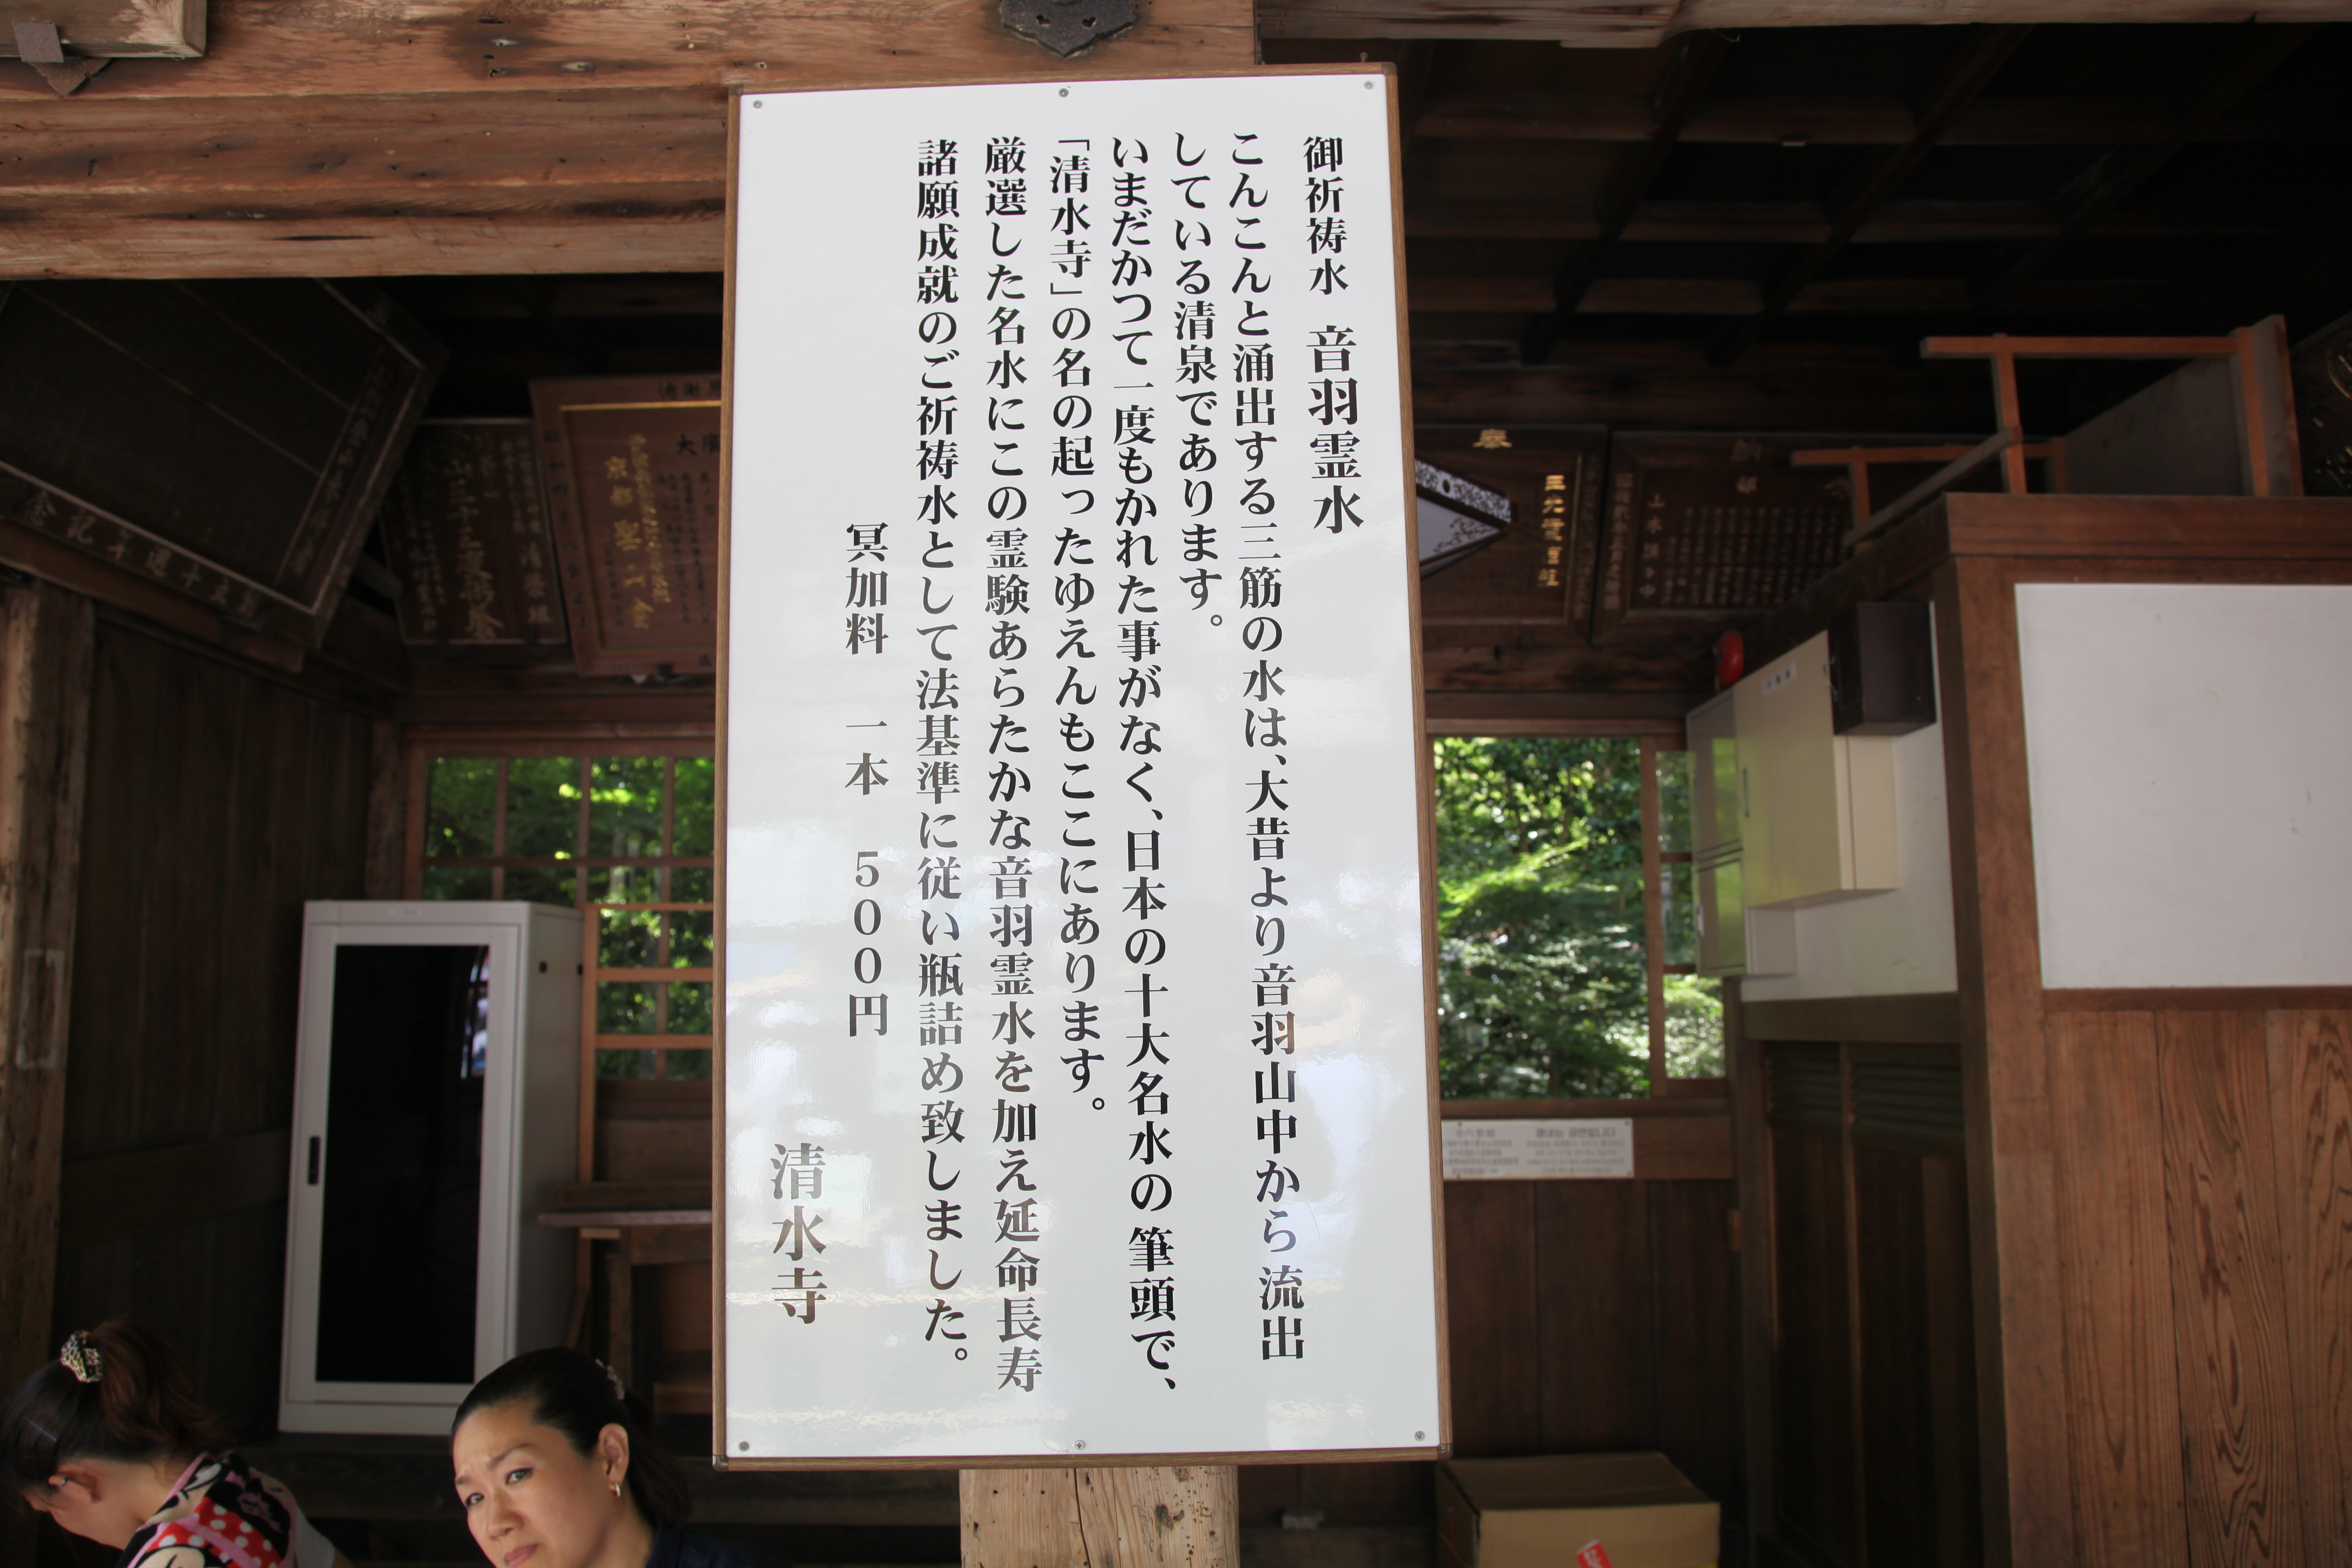 御祈祷水 音羽霊水
こんこんと涌出する三筋の水は、大昔より音羽山中から流出
している清泉であります。
いまだかつて一度もかれた事がなく、日本の十大名水の筆頭で、
「清水寺」の名の起ったゆえんもここにあります。
厳選した名水にこの霊験あらたかな音羽霊水を加え延命長寿
諸願成就のご祈祷水として法基準に従い瓶詰め致しました。
冥加料 一本 500円
清水寺